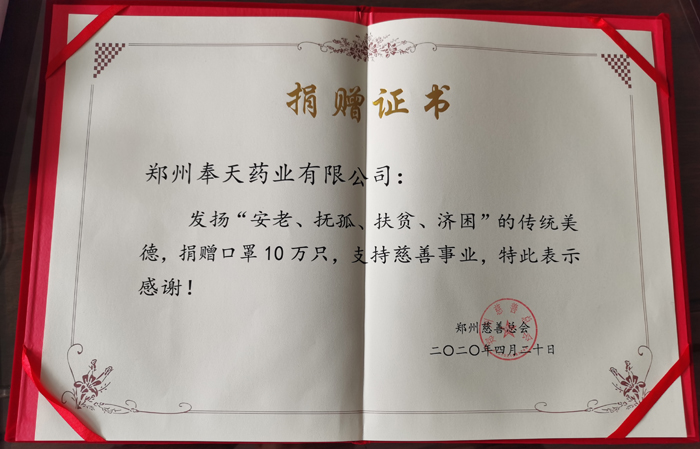 捐赠证书
郑州奉天药业有限公司：
发扬“安老、抚孤、扶贫、济困”的传统美
德，捐赠口罩10万只，支持慈善事业，特此表示
感谢！
郑州慈善总会
二〇二〇年四月二十日